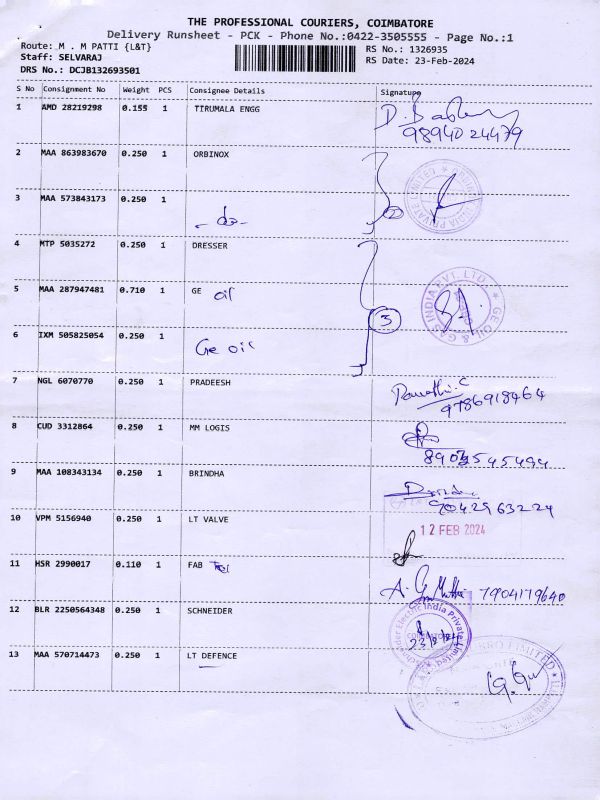 THE PROFESSIONAL COURIERS, COIMBATORE
Delivery Runsheet - PCK - Phone No.:0422-3505555 - Page No.:1
Route: M . M PATTI {L&T}
RS No.: 1326935
Staff: SELVARAJ
RS Date: 23-Feb-2024
DRS No.: DCJB132693501
S No Consignment No Weight PCS Consignee Details Signature
1 AMD 28219298 0.155 1 TIRUMALA ENGG
9894024479
2 MAA 863983670 0.250 1 ORBINOX
3 MAA 573843173 0.250 1
- do - 2
4 MTP 5035272 0.250 1 DRESSER
5 MAA 287947481 0.710 1 GE oil
GE OIL & GAS INDIA PVT. LTD.
3
6 IXM 505825054 0.250 1
Ge oil
7 NGL 6070770 0.250 1 PRADEESH
9786918464
8 CUD 3312864 0.250 1 MM LOGIS
9 MAA 108343134 0.250 1 BRINDHA
9042963224
10 VPM 5156940 0.250 1 LT VALVE
12 FEB 2024
11 HSR 2990017 0.110 1 FAB
7904179640
12 BLR 2250564348 0.250 1 SCHNEIDER
Schneider Electric India Private Limited
13 MAA 570714473 0.250 1 LT DEFENCE